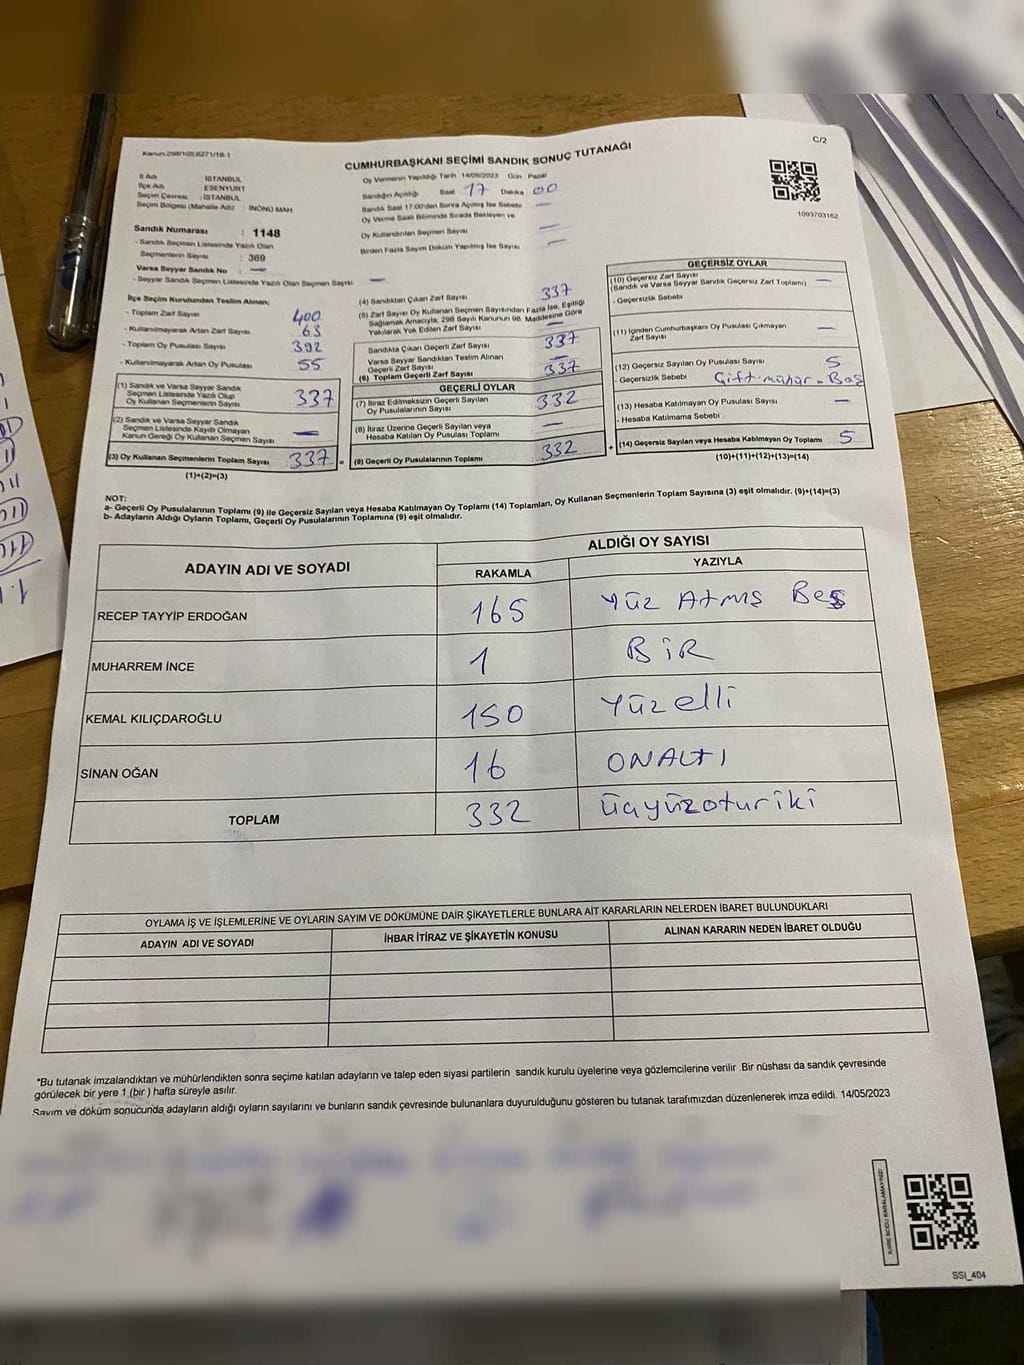 Kanun.298/105,6271/19-1
C/2
CUMHURBAŞKANI SEÇİMİ SANDIK SONUÇ TUTANAĞI
İl Adı : İSTANBUL
İlçe Adı : ESENYURT
Seçim Çevresi : İSTANBUL
Seçim Bölgesi (Mahalle Adı) : İNÖNÜ MAH
Oy Vermenin Yapıldığı Tarih 14/05/2023 Gün Pazar
Sandığın Açıldığı Saat 17 Dakika 00
Sandık Saat 17:00'dan Sonra Açılmış İse Sebebi —
Oy Verme Saati Bitiminde Sırada Bekleyen ve
Oy Kullandırılan Seçmen Sayısı —
Birden Fazla Sayım Döküm Yapılmış İse Sayısı —
1093703162
Sandık Numarası : 1148
- Sandık Seçmen Listesinde Yazılı Olan
Seçmenlerin Sayısı : 369
Varsa Seyyar Sandık No : —
- Seyyar Sandık Seçmen Listesinde Yazılı Olan Seçmen Sayısı —
İlçe Seçim Kurulundan Teslim Alınan;
- Toplam Zarf Sayısı 400
- Kullanılmayarak Artan Zarf Sayısı 63
- Toplam Oy Pusulası Sayısı 392
- Kullanılmayarak Artan Oy Pusulası 55
(1) Sandık ve Varsa Seyyar Sandık
Seçmen Listesinde Yazılı Olup
Oy Kullanan Seçmenlerin Sayısı 337
(2) Sandık ve Varsa Seyyar Sandık
Seçmen Listesinde Kayıtlı Olmayan
Kanun Gereği Oy Kullanan Seçmen Sayısı —
(3) Oy Kullanan Seçmenlerin Toplam Sayısı 337 =
(1)+(2)=(3)
(4) Sandıktan Çıkan Zarf Sayısı 337
(5) Zarf Sayısı Oy Kullanan Seçmen Sayısından Fazla İse, Eşitliği
Sağlamak Amacıyla, 298 Sayılı Kanunun 98. Maddesine Göre
Yakılarak Yok Edilen Zarf Sayısı
Sandıkta Çıkan Geçerli Zarf Sayısı 337
Varsa Seyyar Sandıktan Teslim Alınan
Geçerli Zarf Sayısı —
(6) Toplam Geçerli Zarf Sayısı 337
GEÇERLİ OYLAR
(7) İtiraz Edilmeksizin Geçerli Sayılan
Oy Pusulalarının Sayısı 332
(8) İtiraz Üzerine Geçerli Sayılan veya
Hesaba Katılan Oy Pusulası Toplamı —
(9) Geçerli Oy Pusulalarının Toplamı 332 +
GEÇERSİZ OYLAR
(10) Geçersiz Zarf Sayısı
(Sandık ve Varsa Seyyar Sandık Geçersiz Zarf Toplamı) —
- Geçersizlik Sebebi
(11) İçinden Cumhurbaşkanı Oy Pusulası Çıkmayan
Zarf Sayısı —
(12) Geçersiz Sayılan Oy Pusulası Sayısı 5
- Geçersizlik Sebebi : Çift mühür - Boş
(13) Hesaba Katılmayan Oy Pusulası Sayısı —
- Hesaba Katılmama Sebebi
(14) Geçersiz Sayılan veya Hesaba Katılmayan Oy Toplamı : 5
(10)+(11)+(12)+(13)=(14)
NOT:
a- Geçerli Oy Pusulalarının Toplamı (9) ile Geçersiz Sayılan veya Hesaba Katılmayan Oy Toplamı (14) Toplamları, Oy Kullanan Seçmenlerin Toplam Sayısına (3) eşit olmalıdır. (9)+(14)=(3)
b- Adayların Aldığı Oyların Toplamı, Geçerli Oy Pusulalarının Toplamına (9) eşit olmalıdır.
ADAYIN ADI VE SOYADI
ALDIĞI OY SAYISI
RAKAMLA YAZIYLA
RECEP TAYYİP ERDOĞAN 165 YÜZ ATMIŞ BEŞ
MUHARREM İNCE 1 BİR
KEMAL KILIÇDAROĞLU 150 Yüzelli
SİNAN OĞAN 16 ONALTI
TOPLAM 332 üçyüzoturiki
OYLAMA İŞ VE İŞLEMLERİNE VE OYLARIN SAYIM VE DÖKÜMÜNE DAİR ŞİKAYETLERLE BUNLARA AİT KARARLARIN NELERDEN İBARET BULUNDUKLARI
ADAYIN ADI VE SOYADI İHBAR İTİRAZ VE ŞİKAYETİN KONUSU ALINAN KARARIN NEDEN İBARET OLDUĞU
*Bu tutanak imzalandıktan ve mühürlendikten sonra seçime katılan adayların ve talep eden siyasi partilerin sandık kurulu üyelerine veya gözlemcilerine verilir .Bir nüshası da sandık çevresinde
görülecek bir yere 1 (bir ) hafta süreyle asılır.
Sayım ve döküm sonucunda adayların aldığı oyların sayılarını ve bunların sandık çevresinde bulunanlara duyurulduğunu gösteren bu tutanak tarafımızdan düzenlenerek imza edildi. 14/05/2023
KARE KODU KARALAMAYINIZ!
SSI_404